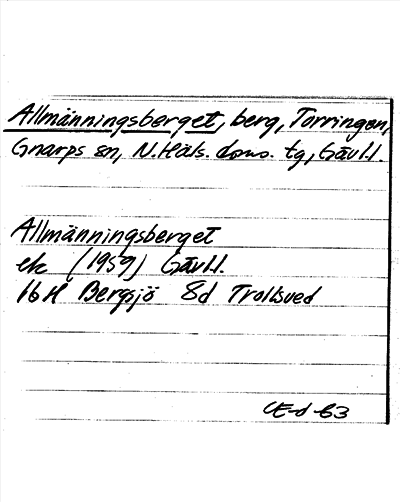 Allmänningsberget, berg, Torringen,
Gnarps sn, N.Häls. doms. tg, Gävl.l.
Allmänningsberget
ek (1959) Gävl.l.
16H Bergsjö 8d Trollsved